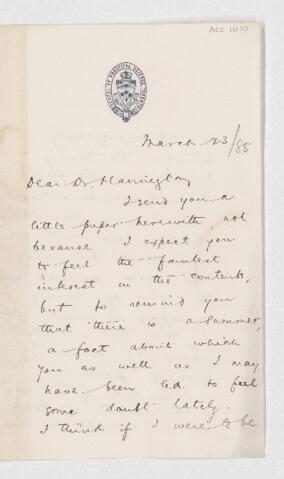 Acc 1010
SCHOOL OF PRACTICAL SCIENCE
March 23/85
Dear Dr. Harrington,
I send you a
little paper herewith, not
because I expect you
to feel the faintest
interest in the contents,
but to remind you
that there is a summer,
a fact about which
you as well as I may
have been led to feel
some doubt lately.
I think if I were to be